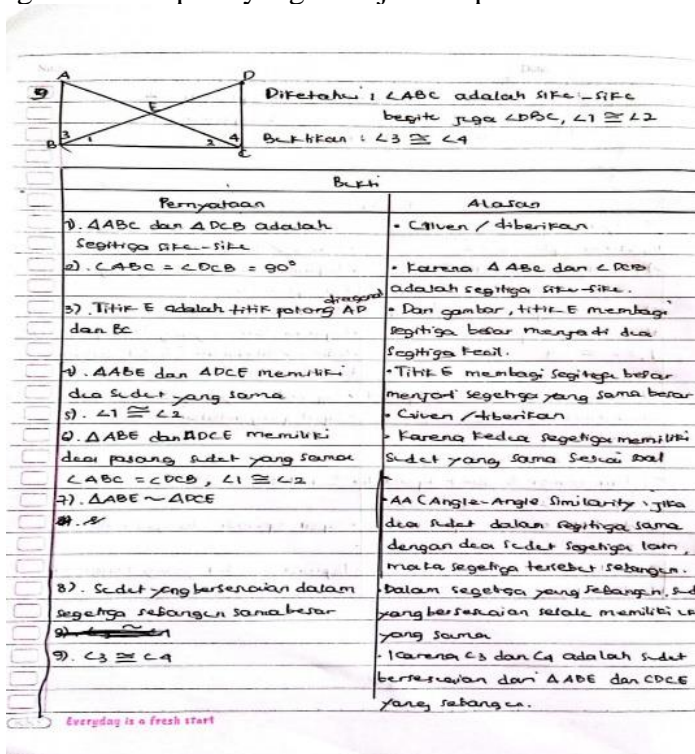 A D
E
B 3 1 2 4 C
9 Diketahui : ∠ABC adalah siku-siku
begitu juga ∠DBC, ∠1 ≅ ∠2
Buktikan : ∠3 ≅ ∠4
Bukti
Pernyataan Alasan
1). △ABC dan △DCB adalah
segitiga siku-siku
• Given / diberikan
2). ∠ABC = ∠DCB = 90°
• Karena △ABC dan ∠DCB
adalah segitiga siku-siku.
3). Titik E adalah titik potong diagonal AD
dan BC
• Dari gambar, titik E membagi
segitiga besar menjadi dua
segitiga kecil.
4). △ABE dan △DCE memiliki
dua sudut yang sama
• Titik E membagi segitiga besar
menjadi segitiga yang sama besar
5). ∠1 ≅ ∠2
• Given / diberikan
6). △ABE dan △DCE memiliki
dua pasang sudut yang sama
∠ABC = ∠DCB, ∠1 ≅ ∠2
• Karena kedua segitiga memiliki
sudut yang sama sesuai soal
7). △ABE ~ △DCE
• AA (Angle-Angle Similarity, jika
dua sudut dalam segitiga sama
dengan dua sudut segitiga lain,
maka segitiga tersebut sebangun.
8). Sudut yang bersesuaian dalam
segitiga sebangun sama besar
• Dalam segitiga yang sebangun,
yang bersesuaian selalu memiliki
yang sama
9). ∠3 ≅ ∠4
• Karena ∠3 dan ∠4 adalah sudut
bersesuaian dari △ABE dan CDCE
yang sebangun.
Everyday is a fresh start